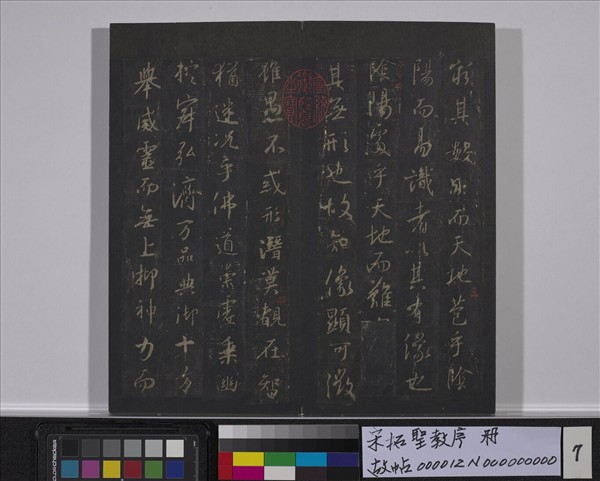 窮其數然而天地苞乎陰
陽而易識者以其有像也
陰陽處乎天地而難
其無形也故知像顯可徵
雖愚不惑形潛莫覩在智
猶迷況乎佛道崇虛乘幽
控寂弘濟万品典御十方
舉威靈而無上抑神力而
宋拓聖教序 冊
故帖000012N000000000
7